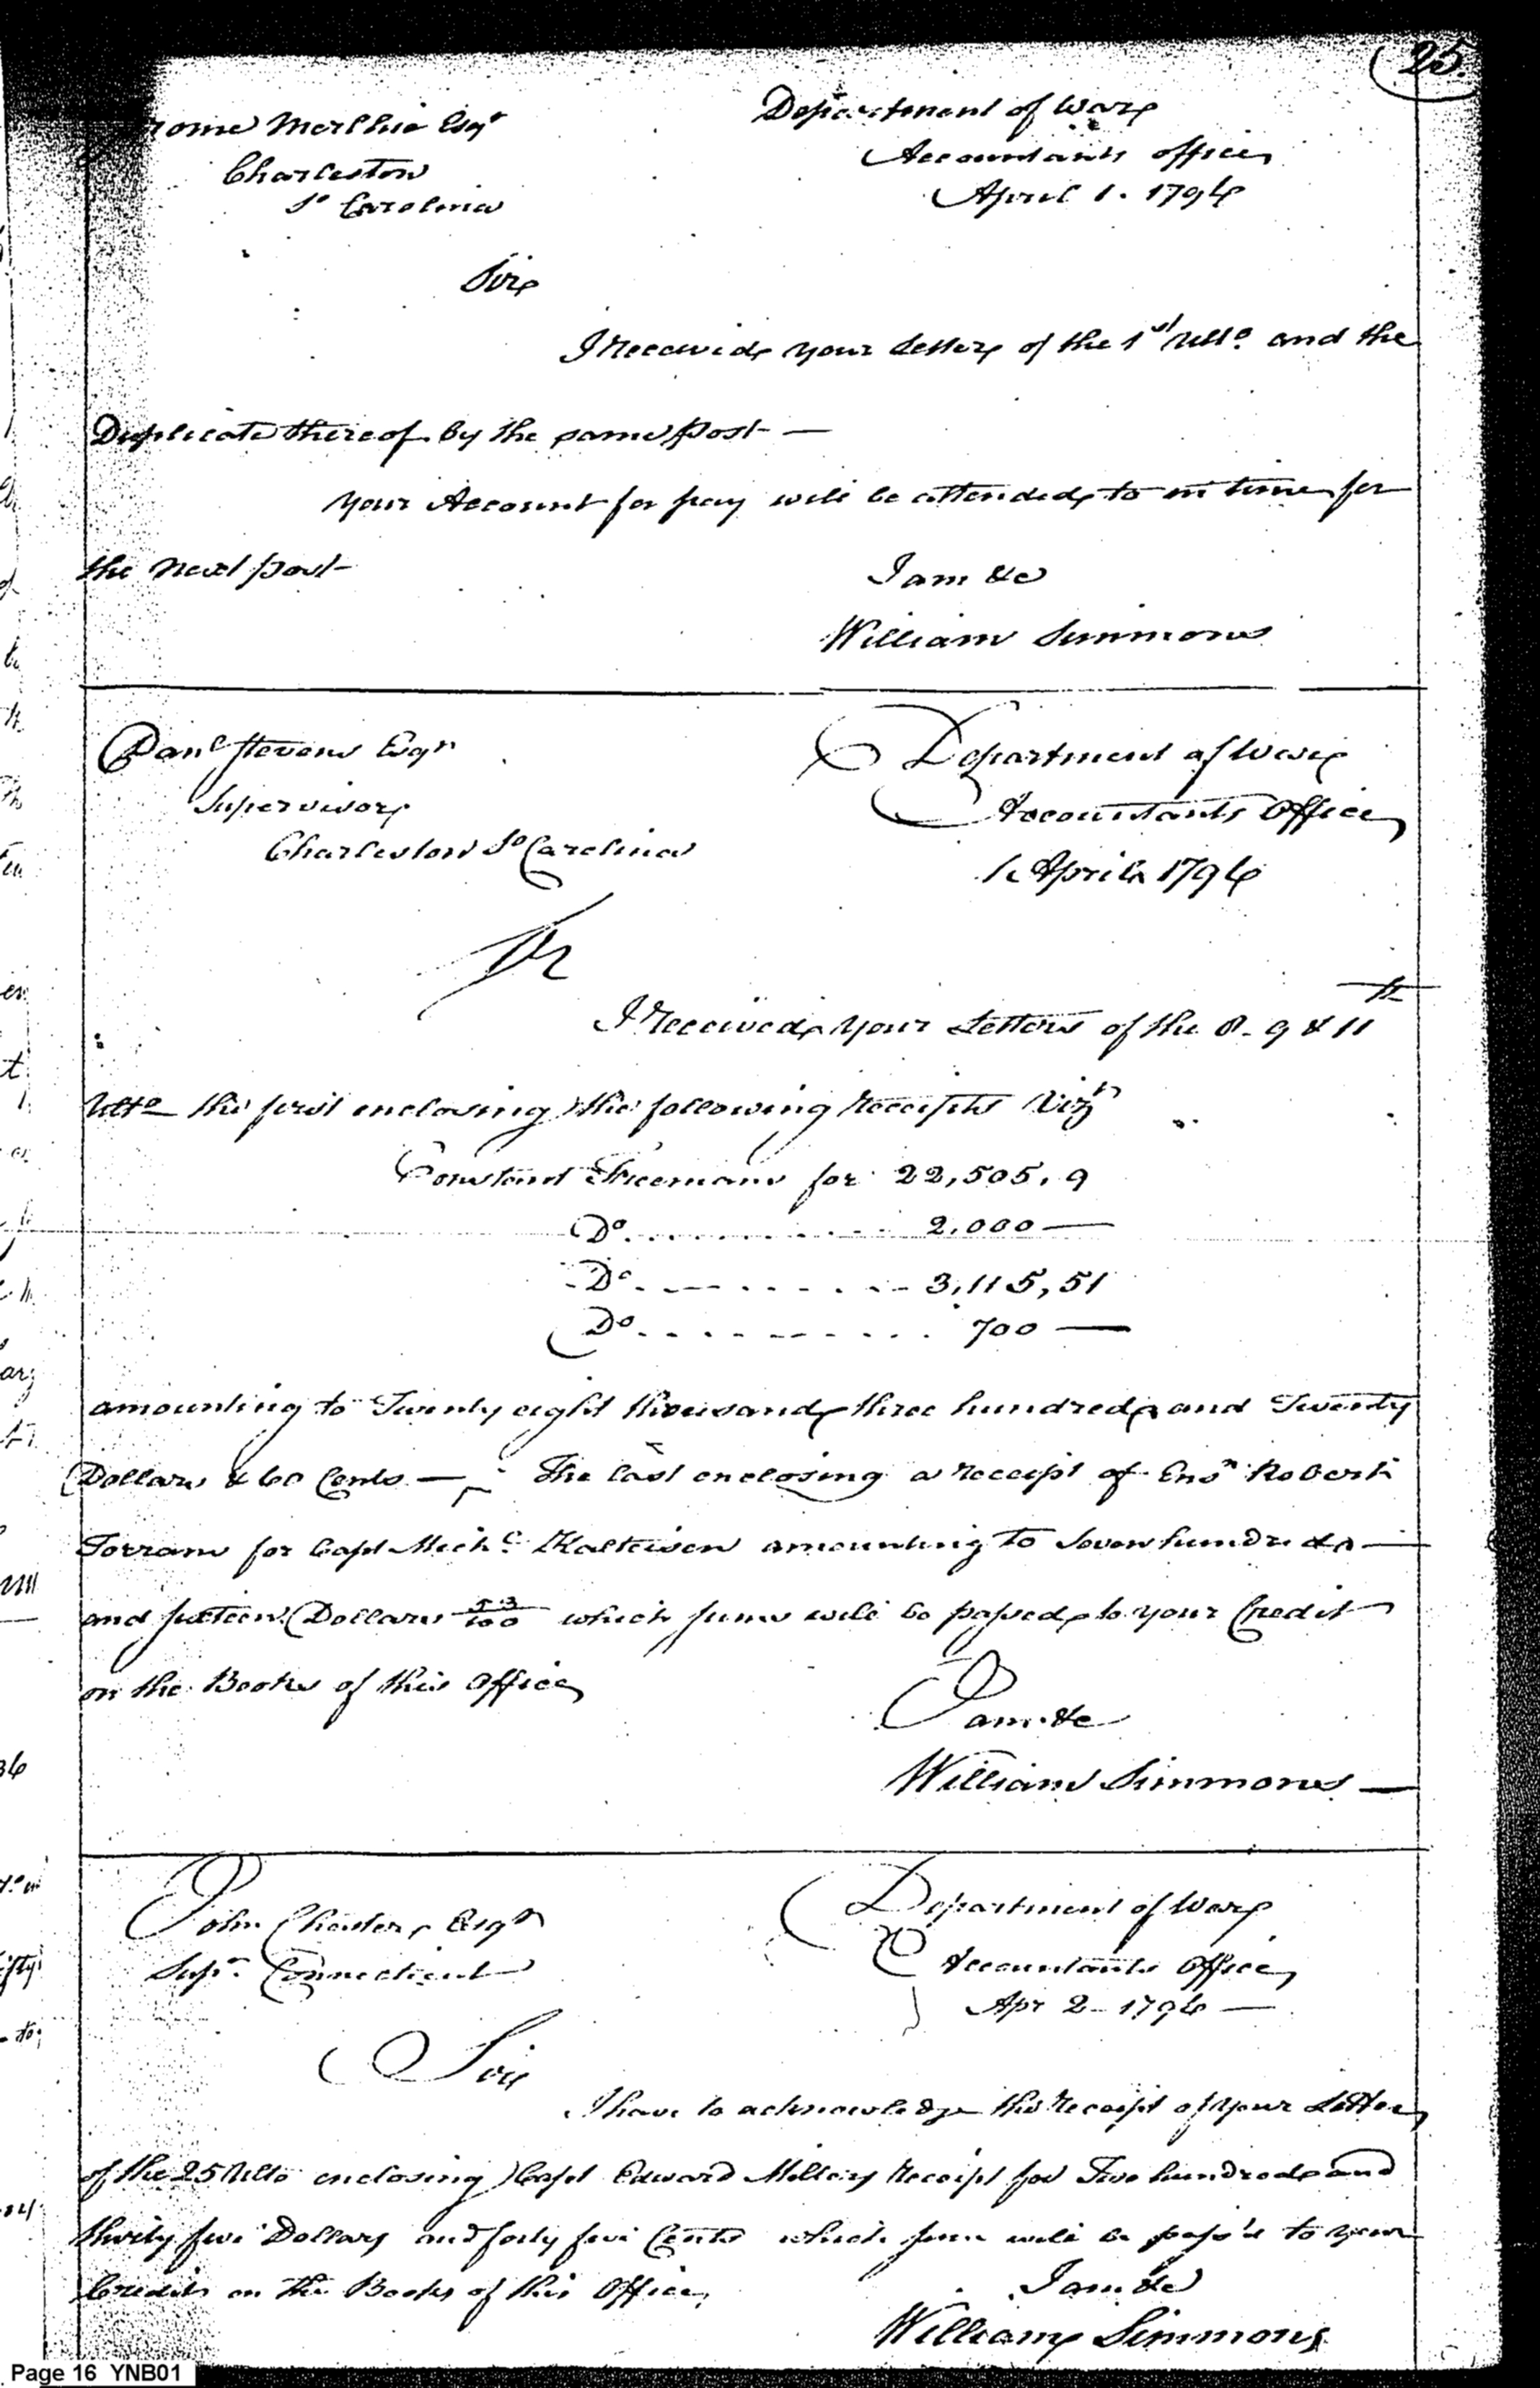 25.
Department of War
Esqr
Accountants office
Charleston
April 1. 1794
So Carolina
Sir
I received your Letter of the 1st Ulto. and the
Duplicate thereof by the same post —
your Account for pay will be attended to in time for
the next post
I am &c
William Simmons
Danl Stevens Esqr
Department of War
Supervisor
Accountants Office
Charleston So Carolina
1. April 1794
Sir
I received your Letters of the 8. 9 & 11th
Ulto the first enclosing the following receipts Vizt
Constant Freemans for 22,505.9
Do. . . . . . . . . . 2,000 —
Do. . . . . . . . . . 3,115,51
Do. . . . . . . . . . 700 —
amounting to Twenty eight thousand three hundred and Twenty
Dollars & 60 Cents — The last enclosing a receipt of Ensn Robert
for Capt Michl Kalteisen amounting to Seven hundred —
and sixteen Dollars 53/100 which sums will be passed to your Credit
on the Books of this Office
I am &c
William Simmons —
John Chester Esqr
Department of War
Supr. Connecticut
Accountants Office
Apr 2 - 1794 —
Sir
I have to acknowledge the receipt of your Letter
of the 25 Ulto enclosing Capt Edward Millers Receipt for Two hundred and
thirty five Dollars and forty five Cents which sum will be pass'd to your
Credit on the Books of this Office.
I am &c
William Simmons
Page 16 YNB01